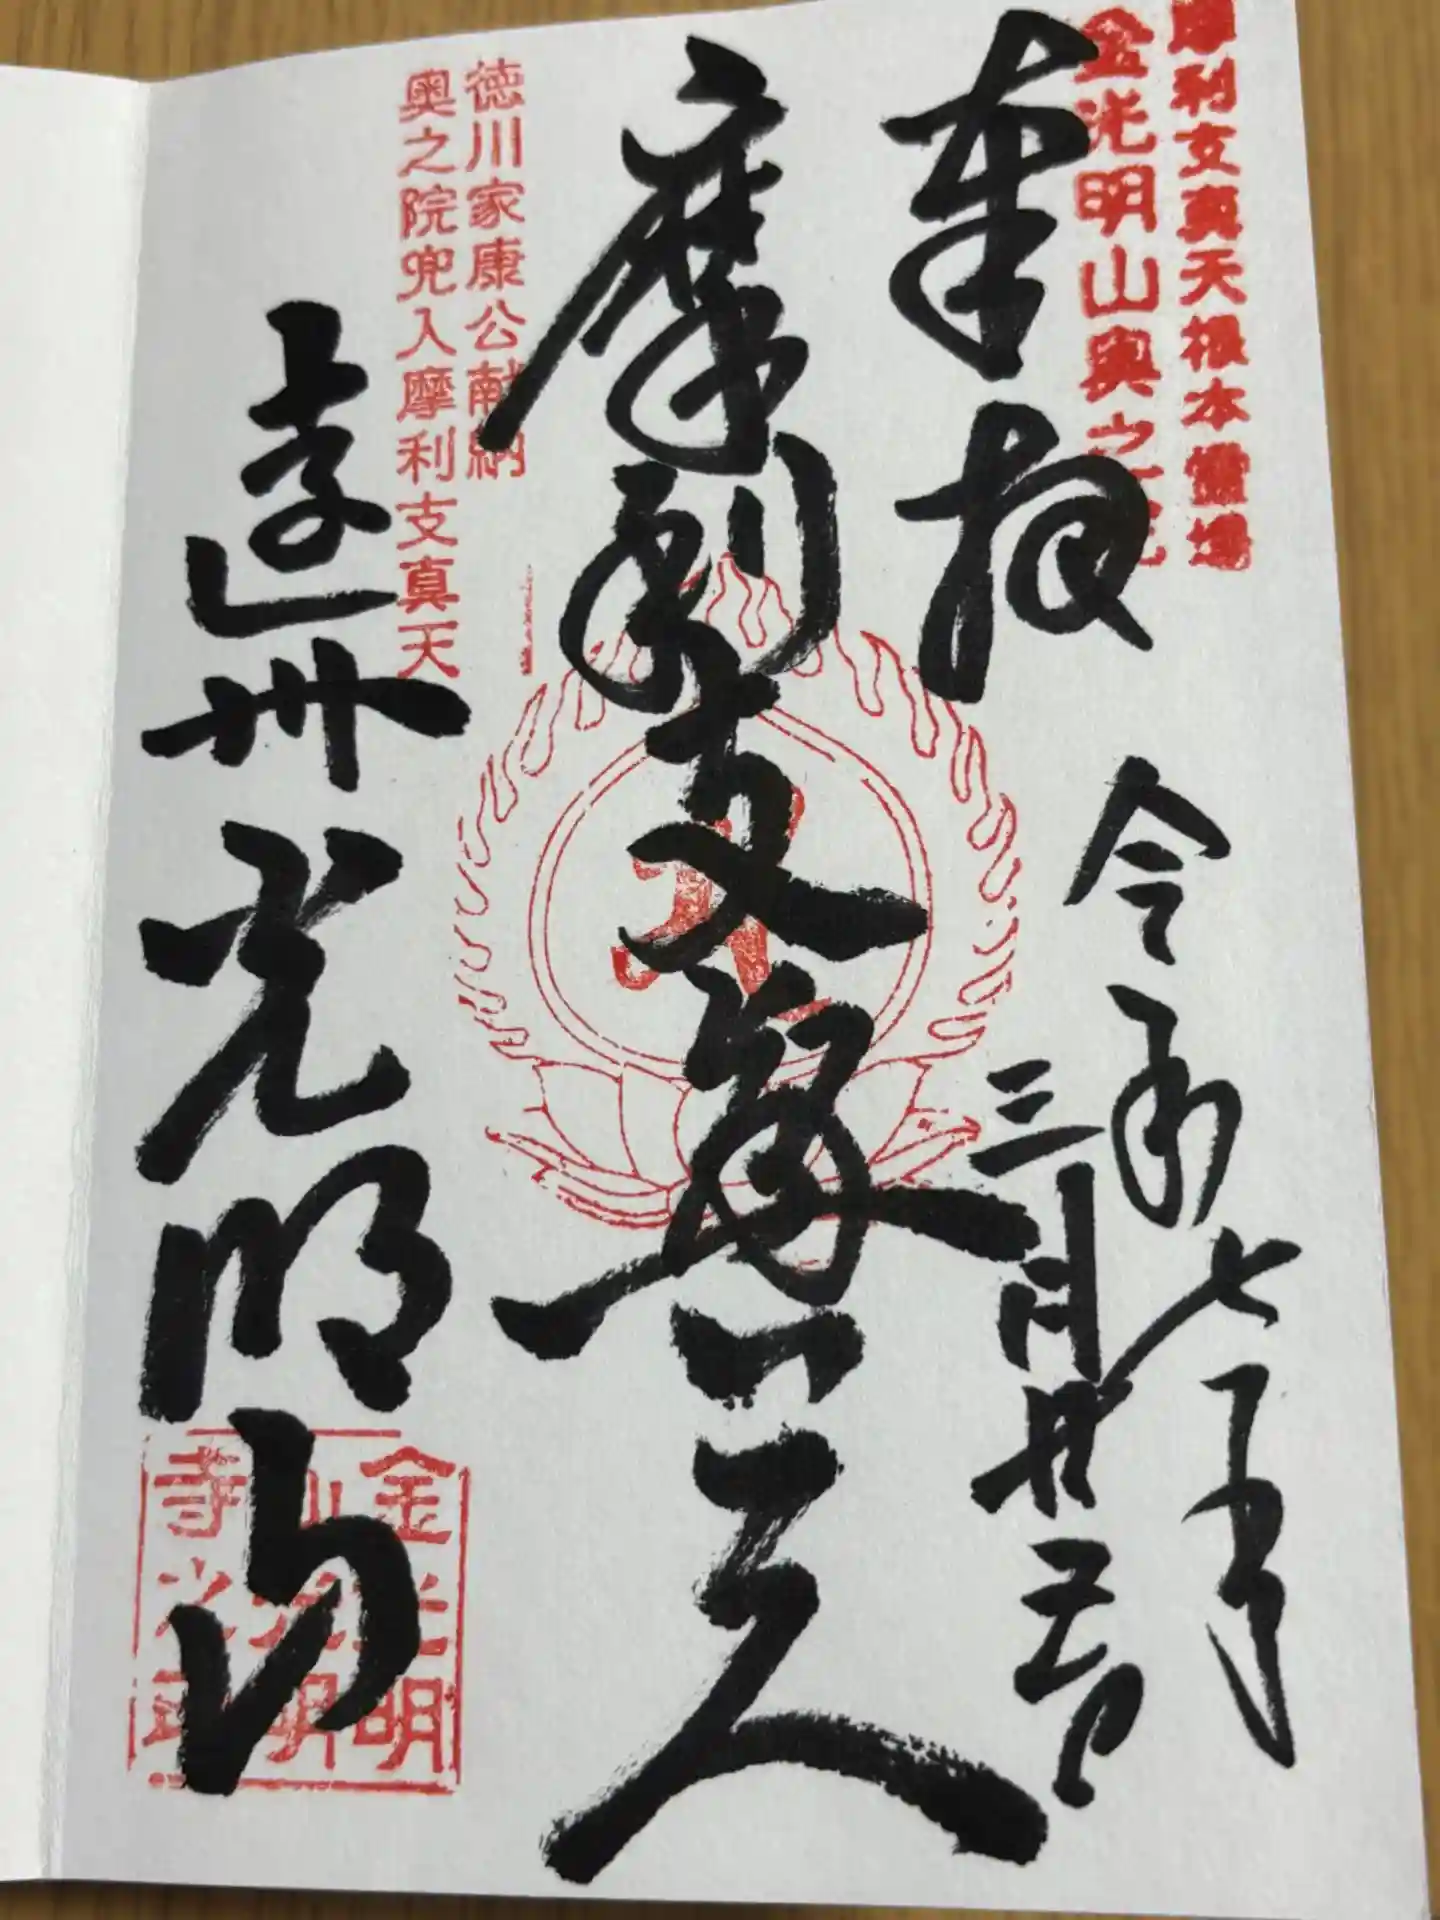 摩利支真天根本霊場
金光明山奥之院
奉拝
令和七年
三月廿五日
摩利支真天
徳川家康公献納
奥之院兜入摩利支真天
遠州光明山
金光明